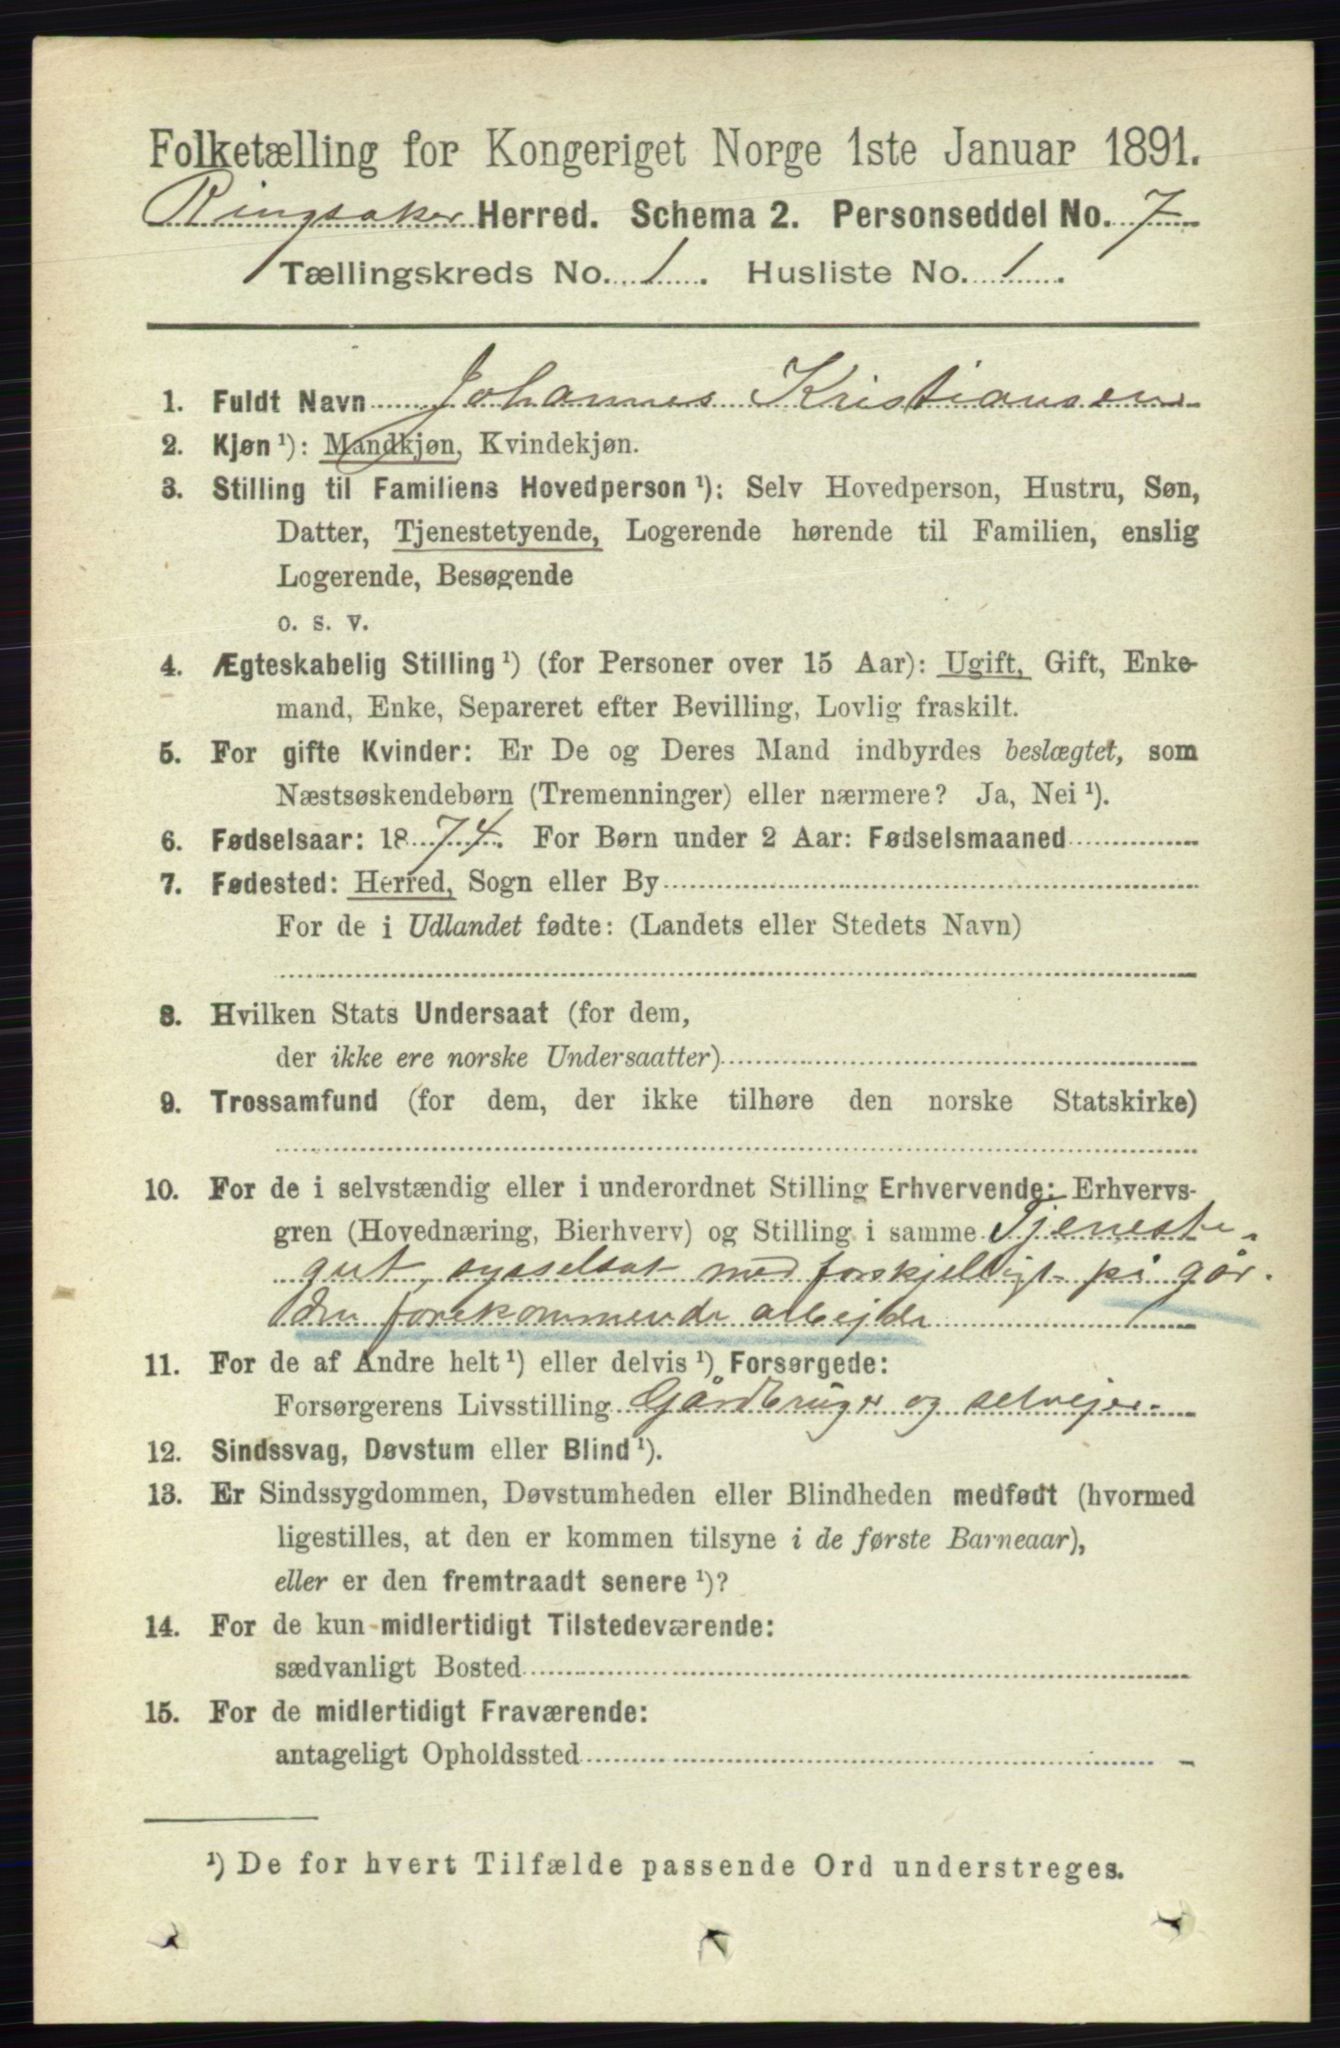 Folketælling for Kongeriget Norge 1ste Januar 1891.
Ringsaker Herred. Schema 2. Personseddel No. 7
Tællingskreds No. 1. Husliste No. 1.
1. Fuldt Navn Johannes Kristiansen
2. Kjøn ¹): Mandkjøn, Kvindekjøn.
3. Stilling til Familiens Hovedperson ¹): Selv Hovedperson, Hustru, Søn,
Datter, Tjenestetyende, Logerende hørende til Familien, enslig
Logerende, Besøgende
o. s. v.
4. Ægteskabelig Stilling ¹) (for Personer over 15 Aar): Ugift, Gift, Enke-
mand, Enke, Separeret efter Bevilling, Lovlig fraskilt.
5. For gifte Kvinder: Er De og Deres Mand indbyrdes beslægtet, som
Næstsøskendebørn (Tremenninger) eller nærmere? Ja, Nei ¹).
6. Fødselsaar: 1874. For Børn under 2 Aar: Fødselsmaaned
7. Fødested: Herred, Sogn eller By
For de i Udlandet fødte: (Landets eller Stedets Navn)
8. Hvilken Stats Undersaat (for dem,
der ikke ere norske Undersaatter)
9. Trossamfund (for dem, der ikke tilhøre den norske Statskirke)
10. For de i selvstændig eller i underordnet Stilling Erhvervende: Erhvervs-
gren (Hovednæring, Bierhverv) og Stilling i samme Tjeneste-
gut, sysselsat med forskjelligt på går-
den forekommende arbejde
11. For de af Andre helt ¹) eller delvis ¹) Forsørgede:
Forsørgerens Livsstilling Gårdbruger og selvejer.
12. Sindssvag, Døvstum eller Blind ¹).
13. Er Sindssygdommen, Døvstumheden eller Blindheden medfødt (hvormed
ligestilles, at den er kommen tilsyne i de første Barneaar),
eller er den fremtraadt senere ¹)?
14. For de kun midlertidigt Tilstedeværende:
sædvanligt Bosted
15. For de midlertidigt Fraværende:
antageligt Opholdssted
¹) De for hvert Tilfælde passende Ord understreges.